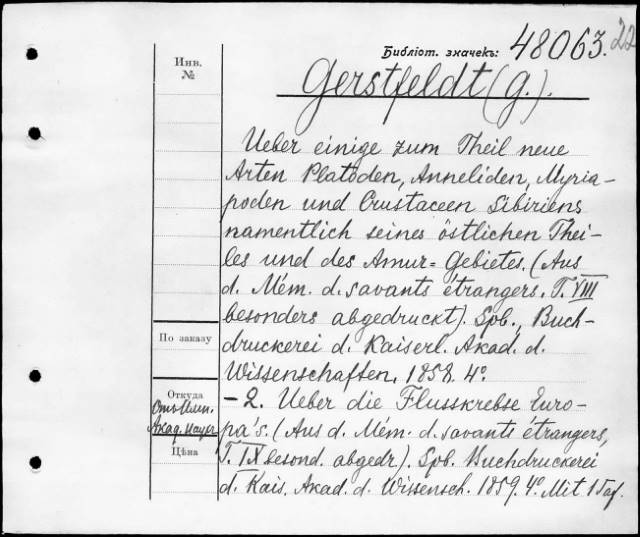 Библіот. значекъ: 48063. 22
Инв.
№
Gerstfeldt (G.).
Ueber einige zum Theil neue
Arten Platoden, Anneliden, Myria-
poden und Crustaceen Sibiriens
namentlich seines östlichen Thei-
les und des Amur=Gebietes. (Aus
d. Mém. d. savants étrangers. T. VIII
besonders abgedruckt). Spb., Buch-
druckerei d. Kaiserl. Akad. d.
Wissenschaften. 1858. 4º.
По заказу
Откуда
Отъ Имп.
Акад. Наукъ
Цѣна
– 2. Ueber die Flusskrebse Euro-
pa's. (Aus d. Mém. d. savants étrangers,
T. IX besond. abgedr.). Spb. Buchdruckerei
d. Kais. Akad. d. Wissensch. 1859. 4º. Mit 1 Taf.